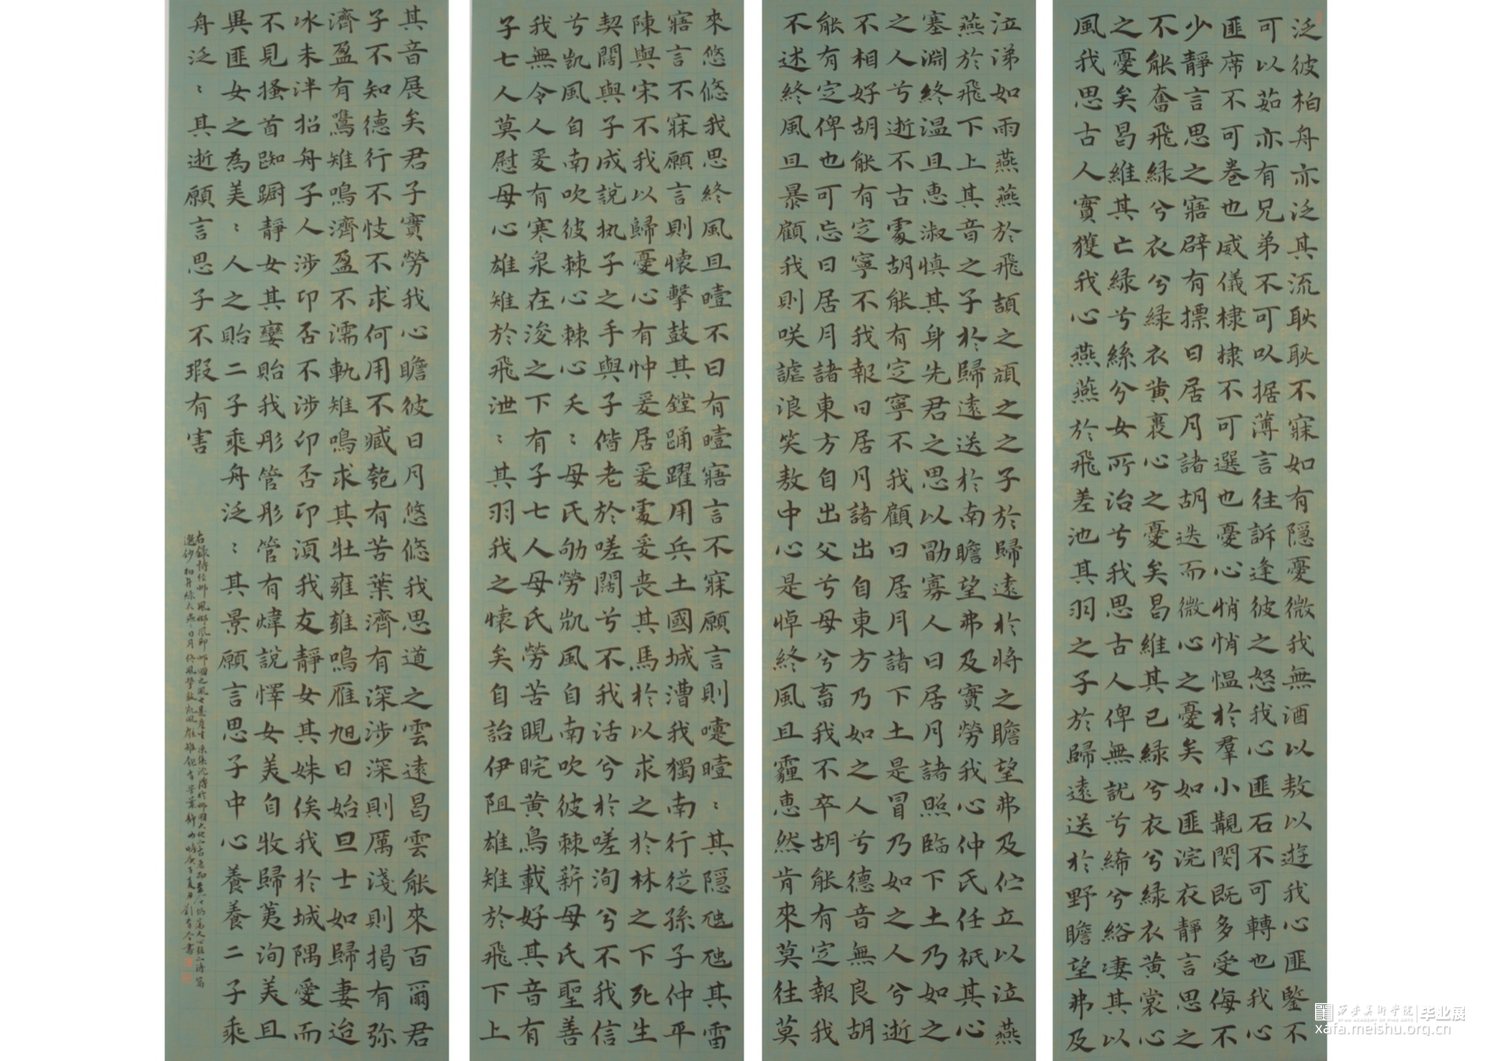 泛彼柏舟亦泛其流耿耿不寐如有隱憂微我無酒以敖以遊我心匪鑒不
可以茹亦有兄弟不可以据薄言往訴逢彼之怒我心匪石不可轉也我心
匪席不可卷也威儀棣棣不可選也憂心悄悄愠於羣小覯閔既多受侮不
少靜言思之寤辟有摽日居月諸胡迭而微心之憂矣如匪浣衣靜言思之
不能奮飛綠兮衣兮綠衣黃裏心之憂矣曷維其已綠兮衣兮綠衣黃裳心
之憂矣曷維其亡綠兮絲兮女所治兮我思古人俾無訧兮絺兮綌兮凄其以
風我思古人實獲我心燕燕於飛差池其羽之子於歸遠送於野瞻望弗及
泣涕如雨燕燕於飛頡之頏之之子於歸遠於將之瞻望弗及伫立以泣燕
燕於飛下上其音之子於歸遠送於南瞻望弗及實勞我心仲氏任祇其心
塞淵終温且惠淑慎其身先君之思以勖寡人日居月諸照臨下土乃如之
之人兮逝不古處胡能有定寧不我顧日居月諸下土是冒乃如之人兮逝
不相好胡能有定寧不我報日居月諸出自東方乃如之人兮德音無良胡
能有定俾也可忘日居月諸東方自出父兮母兮畜我不卒胡能有定報我
不述終風且暴顧我則咲謔浪笑敖中心是悼終風且霾惠然肯來莫往莫
來悠悠我思終風且曀不日有曀寤言不寐願言則嚏曀〻其隱虺虺其雷
寤言不寐願言則懷擊鼓其鏜踊躍用兵土國城漕我獨南行從孫子仲平
陳與宋不我以歸憂心有忡爰居爰處爰喪其馬於以求之於林之下死生
契闊與子成說執子之手與子偕老於嗟闊兮不我活兮於嗟洵兮不我信
兮凱風自南吹彼棘心棘心夭〻母氏劬勞凱風自南吹彼棘薪母氏聖善
我無令人爰有寒泉在浚之下有子七人母氏勞苦睍睆黃鳥載好其音有
子七人莫慰母心雄雉於飛泄〻其羽我之懷矣自詒伊阻雄雉於飛下上
其音展矣君子實勞我心瞻彼日月悠悠我思道之雲遠曷雲能來百爾君
子不知德行不忮不求何用不臧匏有苦葉濟有深涉深則厲淺則揭有弥
濟盈有鷕雉鳴濟盈不濡軌雉鳴求其牡雍雍鳴雁旭日始旦士如歸妻迨
冰未泮招舟子人涉卬否不涉卬否卬須我友靜女其姝俟我於城隅愛而
不見搔首踟躕靜女其孌貽我彤管彤管有煒說懌女美自牧歸荑洵美且
異匪女之為美〻人之貽二子乘舟泛〻其景願言思子中心養養二子乘
舟泛〻其逝願言思子不瑕有害
西安美術學院 毕业展
xafa.meishu.org.cn